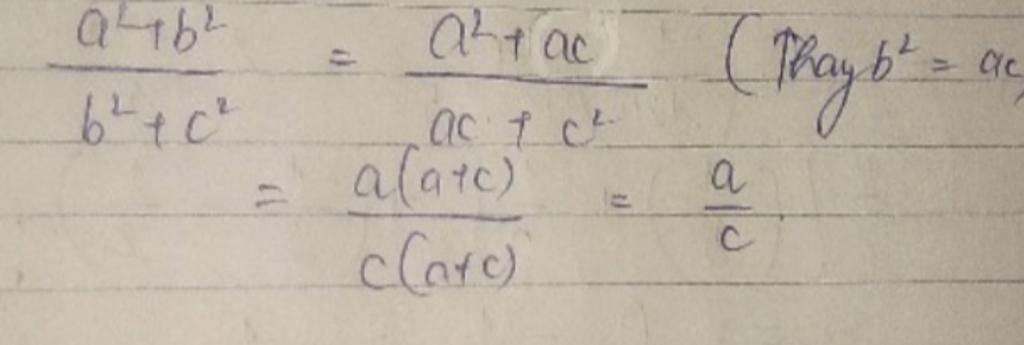 a²+b² / b²+c² = a²+ac / ac+c² (Thay b² = ac)
= a(a+c) / c(a+c) = a / c